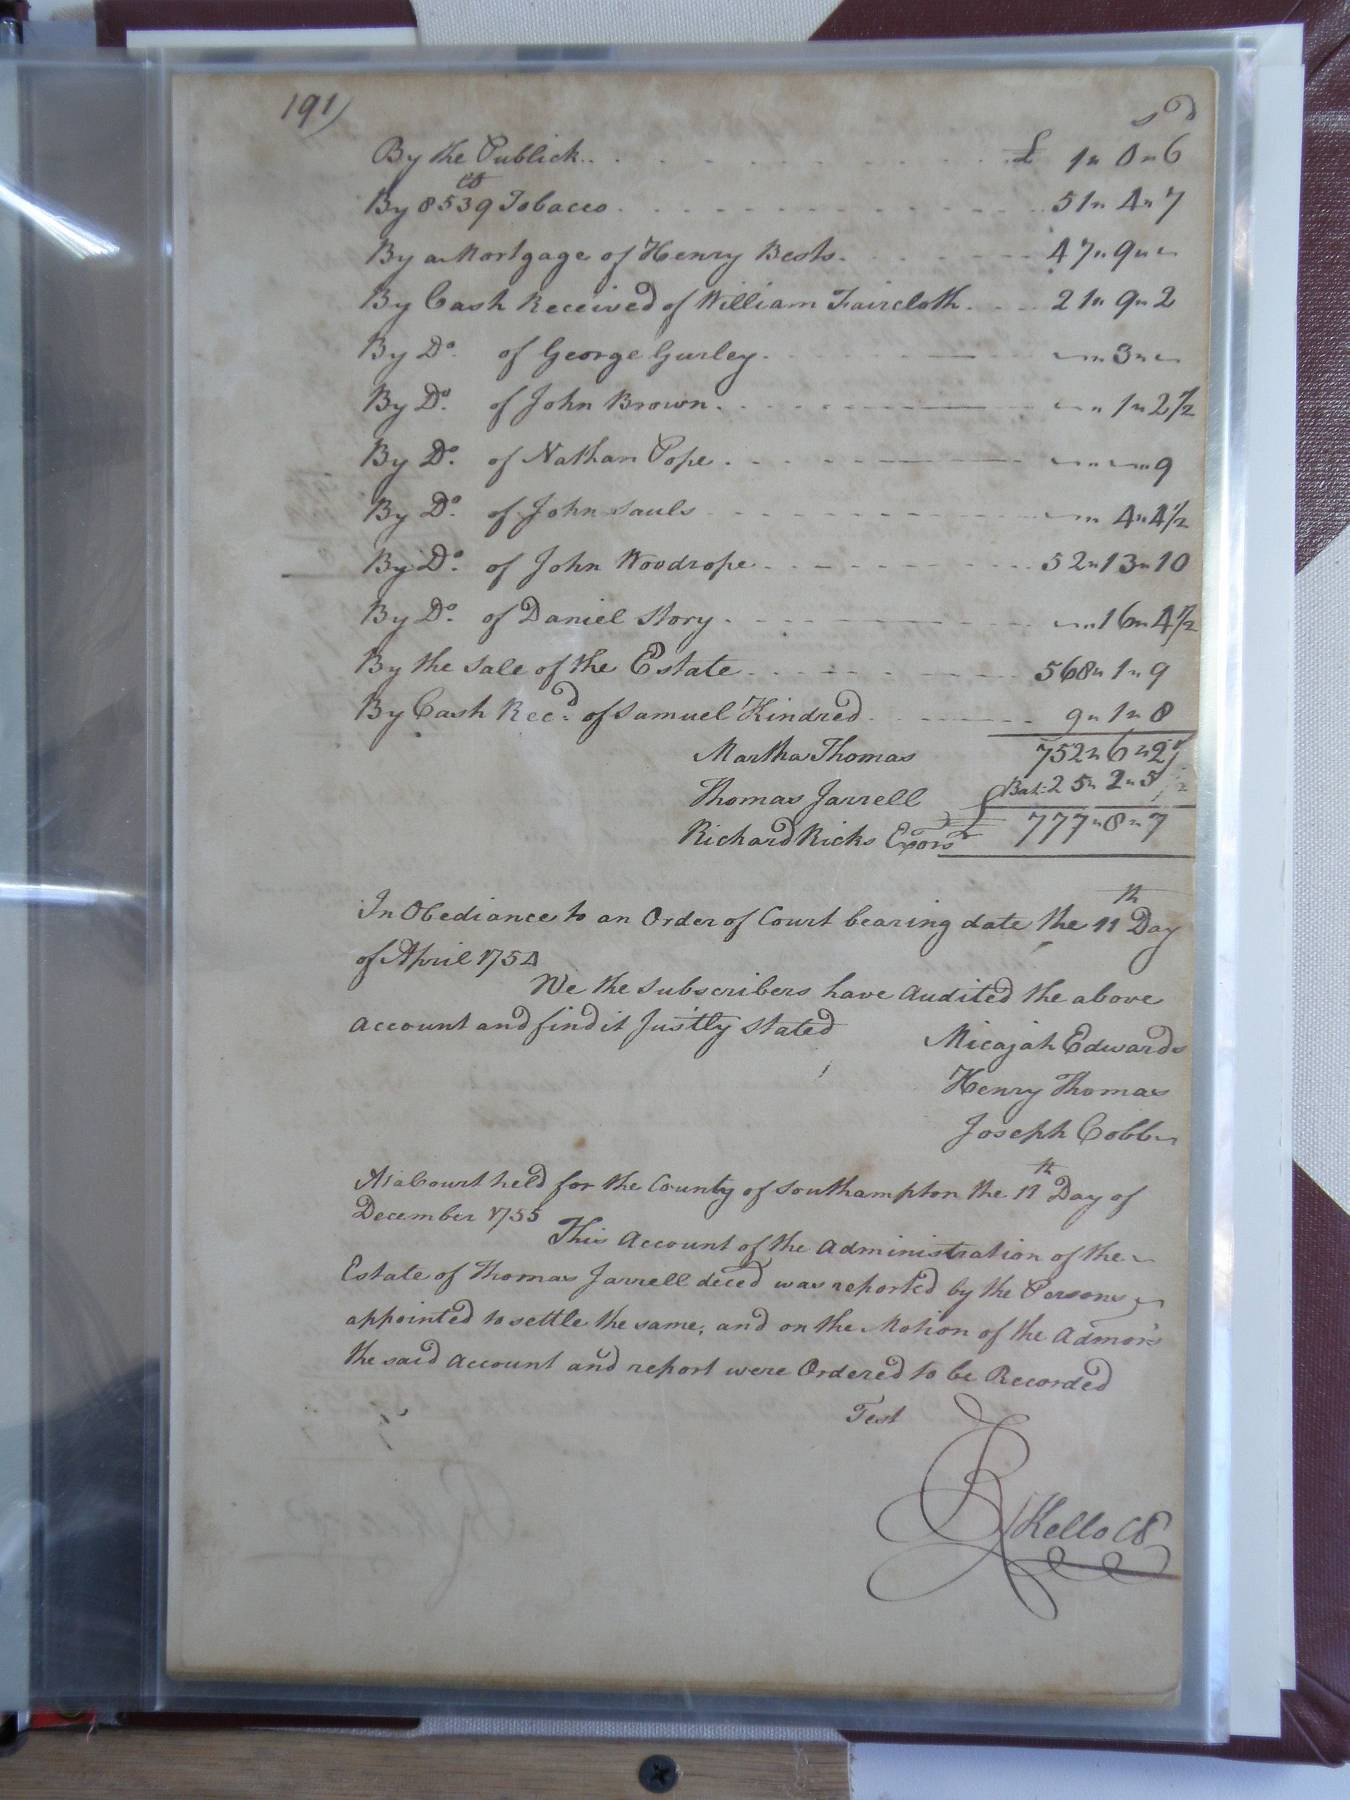 191)
s d
By the Publick . . . . . . . . . . . £ 1 " 0 " 6
By 8539 lb Tobacco . . . . . . . . . . 51 " 4 " 7
By a Mortgage of Henry Bests . . . . . . 47 " 9 " ~
By Cash Received of William Faircloth . . . . 21 " 9 " 2
By Do. of George Gurley . . . . — . . ~ " 3 " ~
By Do. of John Brown . . . . . — . . ~ " 1 " 2 1/2
By Do. of Nathan Pope . . . . — . . ~ " ~ " 9
By Do. of John Sauls . . . . . . . ~ " 4 " 4 1/2
By Do. of John Woodrope . . . . . . . 52 " 13 " 10
By Do. of Daniel Story . . . . . . . ~ " 16 " 4 1/2
By the Sale of the Estate . . . . . . . 568 " 1 " 9
By Cash Recd. of Samuel Kindred . . . . . 9 " 1 " 8
Martha Thomas 752 " 6 " 2
Thomas Jarrell Bal: 25 " 2 " 5
Richard Ricks Exors 777 " 8 " 7
In Obediance to an Order of Court bearing date the 11th Day
of April 1754
We the Subscribers have Audited the above
Account and find it Justly Stated
Micajah Edwards
Henry Thomas
Joseph Cobb
At a Court held for the County of Southampton the 11th Day of
December 1755
This Account of the Administration of the
Estate of Thomas Jarrell deced was reported by the Persons
appointed to settle the same, and on the Motion of the Admors
the said Account and report were Ordered to be Recorded
Test
R Kello